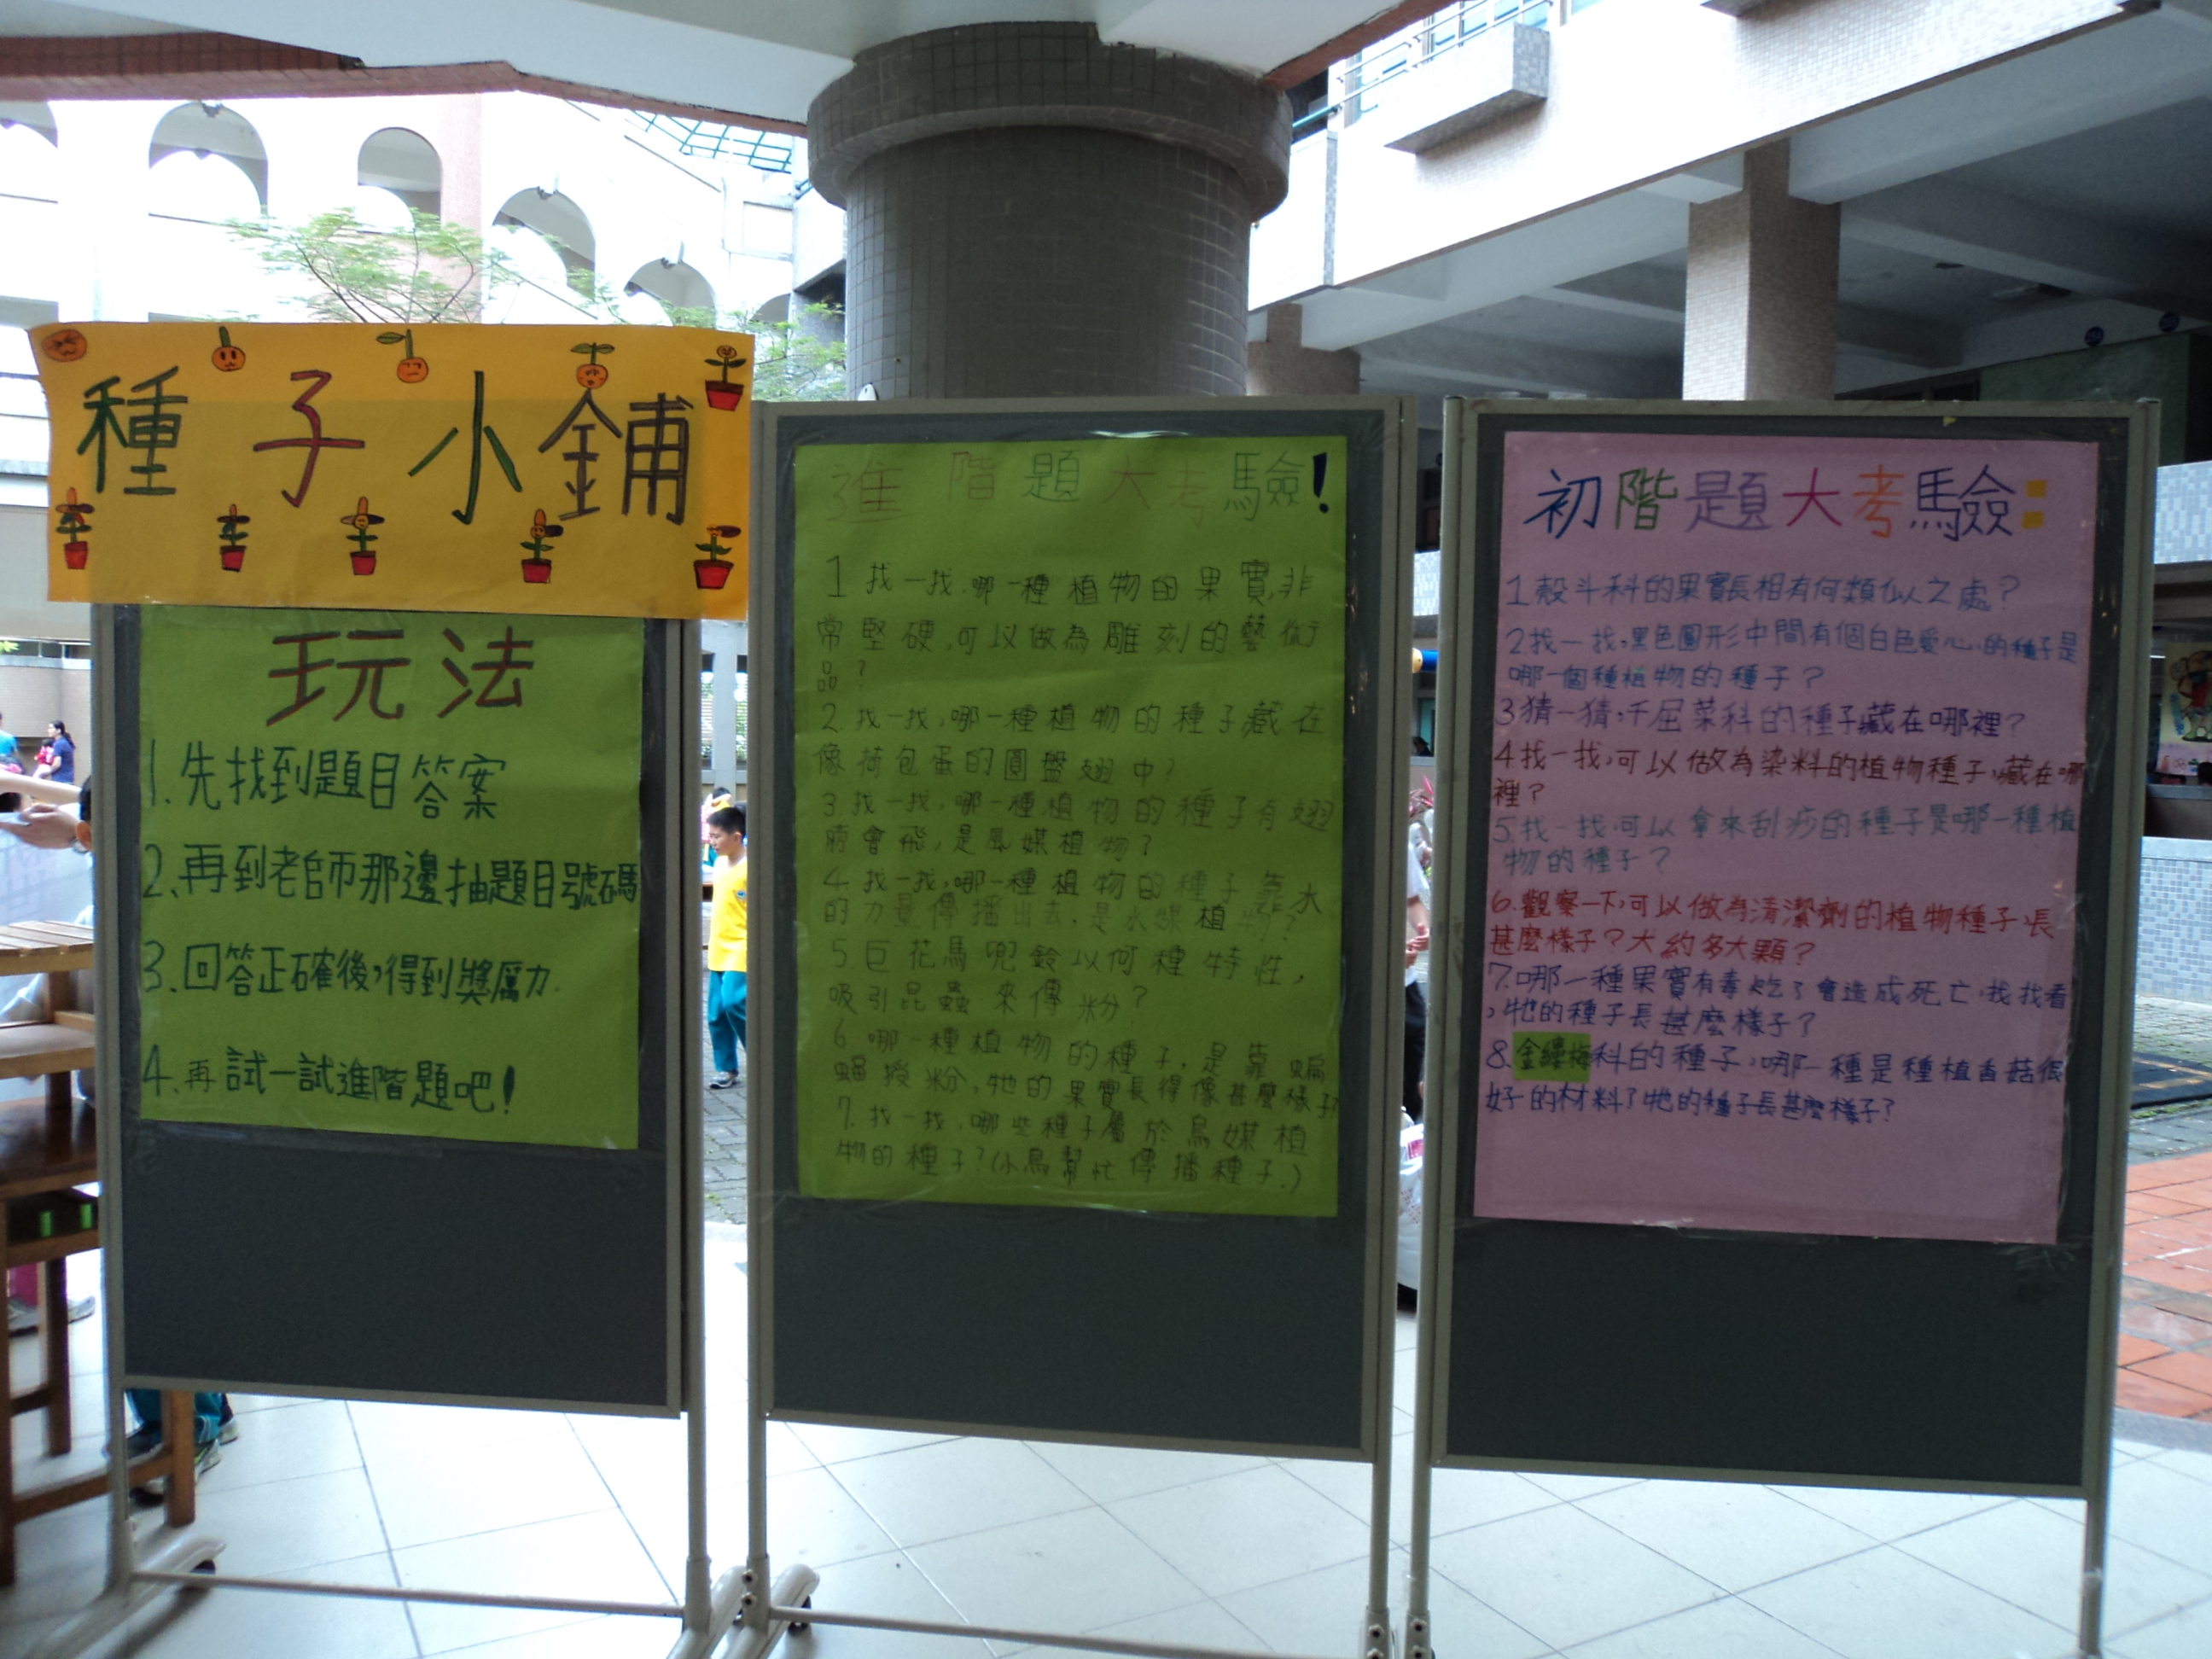 種子小鋪
玩法
1.先找到題目答案
2.再到老師那邊抽題目號碼
3.回答正確後,得到獎勵
4.再試一試進階題吧!
進階題大考驗!
1 找一找,哪一種植物的果實,非
常堅硬,可以做為雕刻的藝術
品?
2.找一找,哪一種植物的種子藏在
像荷包蛋的圓盤翅中?
3.找一找,哪一種植物的種子有翅
會飛,是風媒植物?
4.找一找,哪一種植物的種子靠水
的力量傳播出去,是水媒植物?
5.巨花馬兜鈴以何種特性,
吸引昆蟲來傳粉?
6.哪一種植物的種子,是靠蝙
蝠授粉,牠的果實長得像甚麼樣子?
7.找一找,哪些種子屬於鳥媒植
物的種子?(小鳥幫忙傳播種子.)
初階題大考驗:
1殼斗科的果實長相有何類似之處?
2找一找,黑色圓形中間有個白色愛心的種子是
哪一個種植物的種子?
3猜一猜,千屈菜科的種子藏在哪裡?
4找一找,可以做為染料的植物種子,藏在哪
裡?
5.找一找,可以拿來刮痧的種子是哪一種植
物的種子?
6.觀察一下,可以做為清潔劑的植物種子,長
甚麼樣子?大約多大顆?
7.哪一種果實有毒吃了會造成死亡,找找看
,牠的種子長甚麼樣子?
8.金縷梅科的種子,哪一種是種植香菇很
好的材料?牠的種子長甚麼樣子?